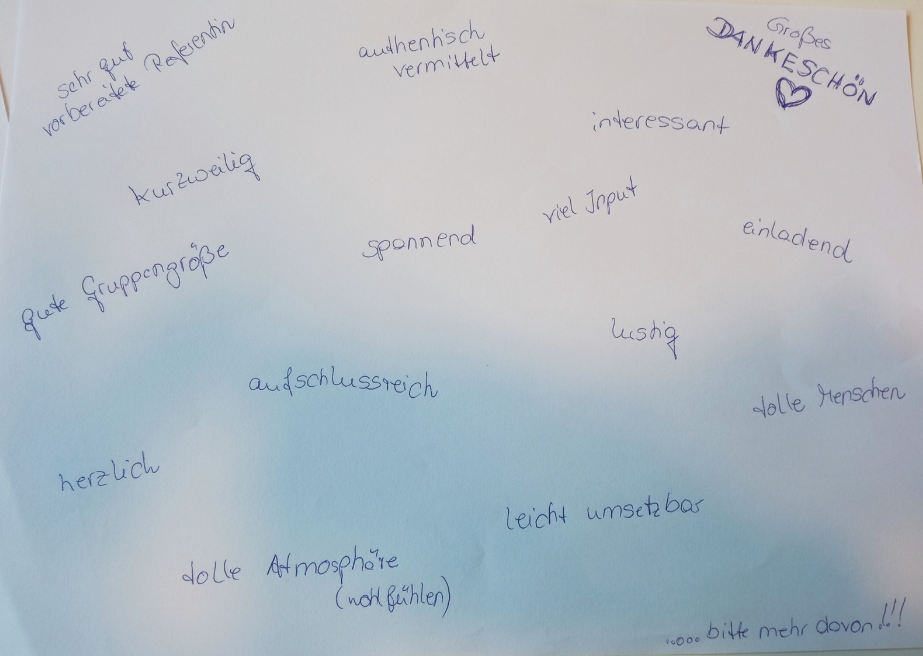 sehr gut
vorbereitete Referentin
authentisch
vermittelt
Großes
DANKESCHÖN
interessant
kurzweilig
viel Input
spannend
einladend
gute Gruppengröße
lustig
aufschlussreich
tolle Menschen
herzlich
leicht umsetzbar
tolle Atmosphäre
(wohlfühlen)
..... bitte mehr davon!!!